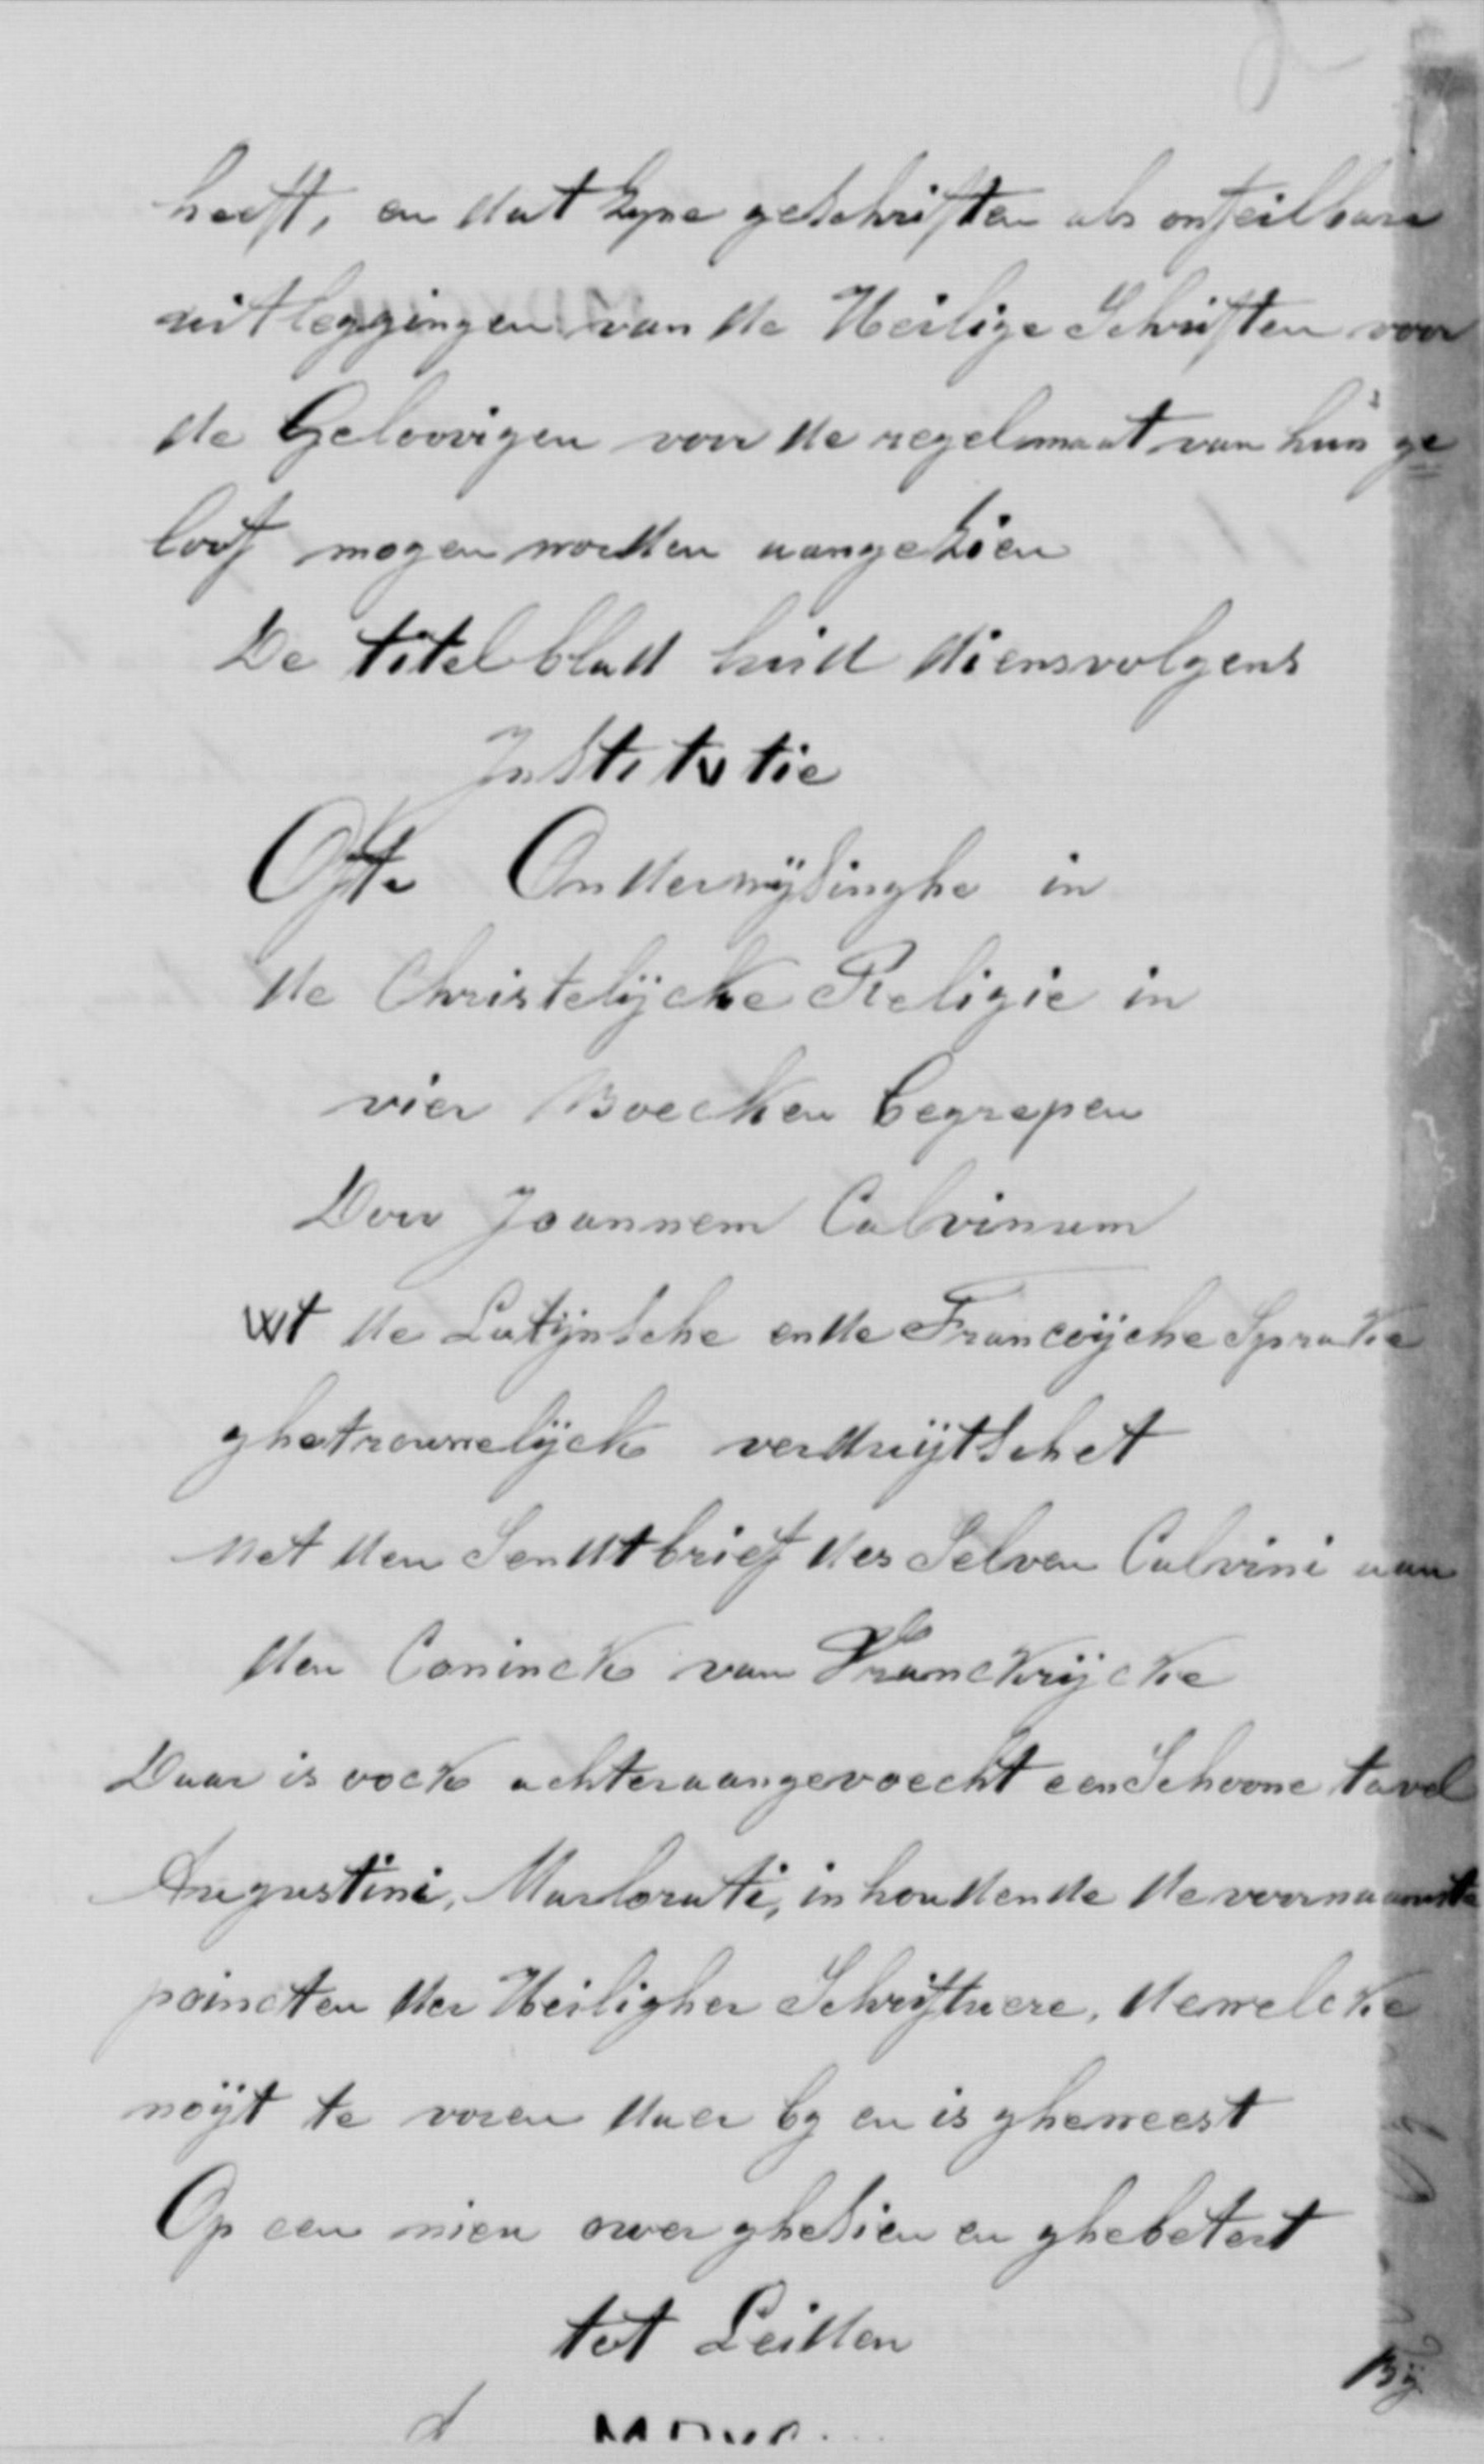 heeft, en dat zyne geschriften als onfeilbare
uitleggingen van de Heilige Schriften voor
de Geloovigen voor de regelmaat van hun ge
loof mogen worden aangezien
De titelblad luid diensvolgens
Institutie
Ofte Onderwijsinghe in
de Christelijcke Religie in
vier Boecken begrepen
Door Joannem Calvinum
Wt de Latijnsche ende Francoijche Sprake
ghetrouwelijck verduijtschet
Met den Sendtbrief des Selven Calvini aan
den Coninck van Franckrijcke
Daar is oock achteraangevoecht een Schoone tavel
Augustini, Marlorati, inhoudende de voornaamste
poincten der Heiligher Schriftuere, dewelcke
noijt te voren daer by en is gheweest
Op een nieu over ghesien en ghebetert
tot Leiden
Bij